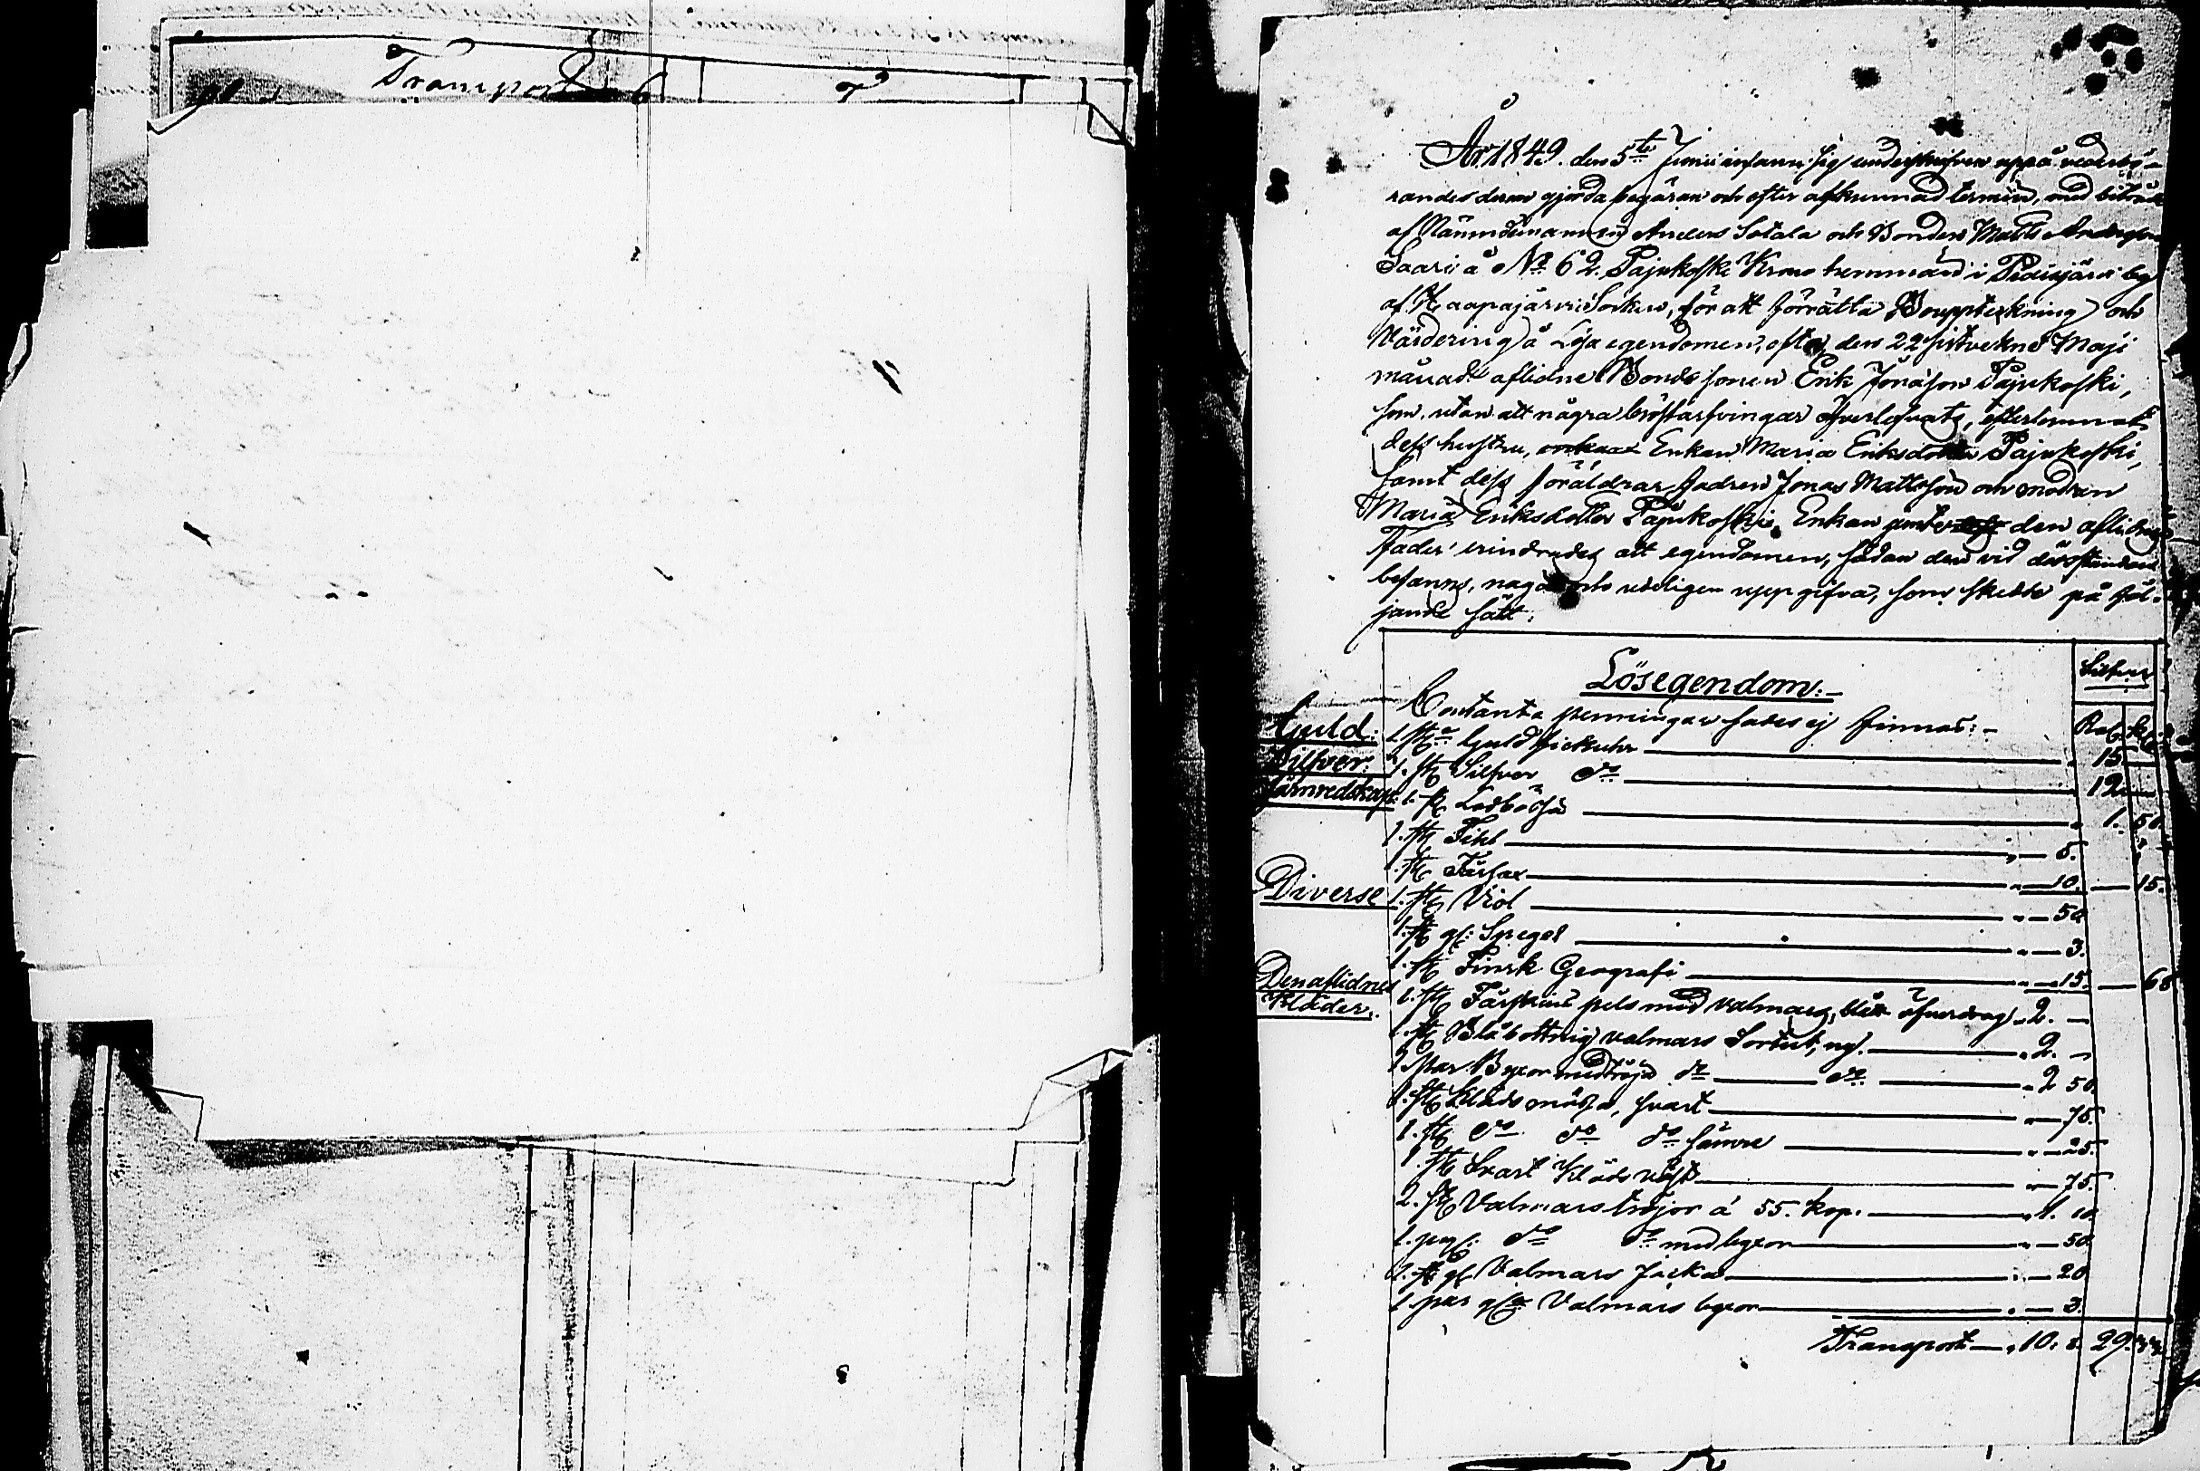 Transport 6
År 1849. den 5te Junii infann sig undertecknad uppå vederbö-
randes derom gjorda begäran och efter afkunnad termin, med biträde
af Nämndemannen Anders Sotala och Bonden Matts Andersson
Saari å No 62. Pajukoski Krono hemman i Pedisjärvi by
af Haapajärvi Socken, för att förrätta Bouppteckning och
Värdering å Lösa egendomen, efter den 22 sistvekne Maji
månad aflidne Bonde sonen Erik Jonasson Pajukoski,
som, utan att några bröstarfvingar öfverlefvat, efterlemnat
dess hustru, Enkan Maria Eriksdotter Pajukoski,
samt dess föräldrar fadren Jonas Mattsson och modren
Maria Eriksdotter Pajukoski. Enkan den aflidnes
Fader erindrades att egendomen, sådan den vid dödsstunden
befanns, noga och redeligen uppgifva, som skedde på föl-
jande sätt:
Lösegendom:
Silfver
Contanta penningar sades ej finnas:
Rub. Kop.
Guld: 1. st. Guld fickuhr 15
Silfver: 1. st. Silfver do 12
Järnredskap: 1. st. Lodbössa 1. 50.
1. st. Fihl 5.
1. st. Fårsax 10. 15.
Diverse 1. st. Viol 50
1. st. gl. Spegel 3.
1. st. Finsk Geografi 15. 68
Den aflidnes Kläder: 1. st. Fårskins pels med valmars, blått öfverdrag 2.
1. st. Blåbottnig valmars Sortut, ny. 2.
1 par Byxor med tröja do do 2 50.
1. st. Kläds mössa, svart 75.
1. st. do do do sämre 25.
1. st. Svart Kläds väst 75.
2. st. Valmars tröjor á 55. kop. 1. 10.
1. par gl. do do med byxor 50.
1. st. gl. Valmars Jacka 20
1 par gla Valmars byxor 3.
Transport 10. 29.